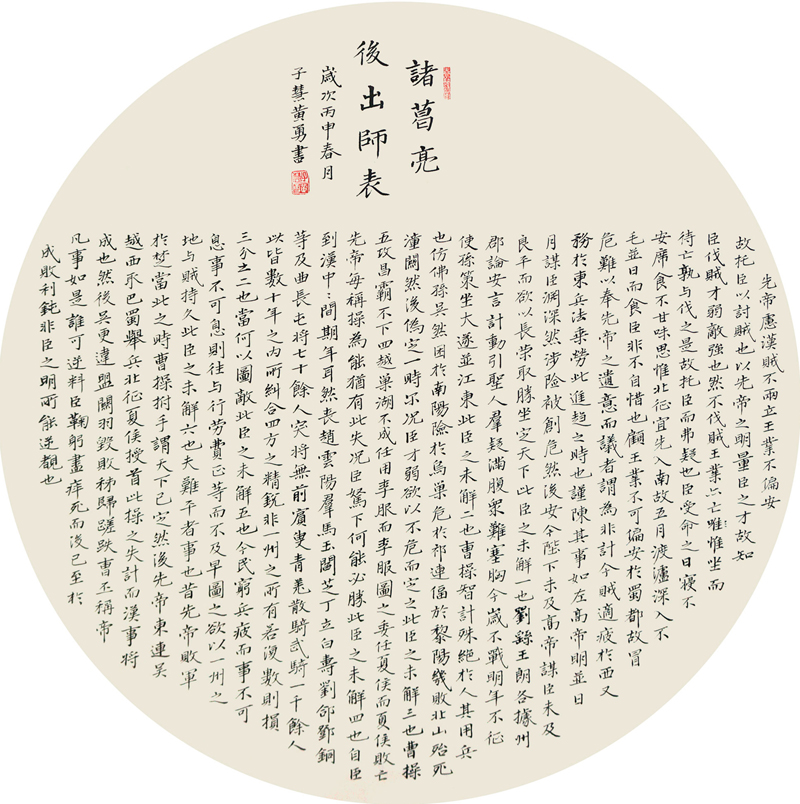 諸葛亮
後出師表
歲次丙申春月
子慧黃勇書
先帝慮漢賊不兩立王業不偏安
故托臣以討賊也以先帝之明量臣之才故知
臣伐賊才弱敵強也然不伐賊王業亦亡唯惟坐而
待亡孰与伐之是故托臣而弗疑也臣受命之日寢不
安席食不甘味思惟北征宜先入南故五月渡瀘深入不
毛並日而食臣非不自惜也顧王業不可偏安於蜀都故冒
危難以奉先帝之遺意而議者謂為非計今賊適疲於西又
務於東兵法乘勞此進趨之時也謹陳其事如左高帝明並日
月謀臣淵深然涉險被創危然後安今陛下未及高帝謀臣未及
良平而欲以長策取勝坐定天下此臣之未解一也劉繇王朗各據州
郡論安言計動引聖人群疑滿腹眾難塞胸今歲不戰明年不征
使孫策坐大遂並江東此臣之未解二也曹操智計殊絕於人其用兵
也仿佛孫吳然困於南陽險於烏巢危於祁連偪於黎陽幾敗北山殆死
潼關然後偽定一時尔況臣才弱欲以不危而定之此臣之未解三也曹操
五攻昌霸不下四越巢湖不成任用李服而李服圖之委任夏侯而夏侯敗亡
先帝每稱操為能猶有此失況臣駑下何能必勝此臣之未解四也自臣
到漢中々間期年耳然喪趙雲陽群馬玉閻芝丁立白壽劉郃鄧銅
等及曲長屯將七十餘人突將無前賨叟青羌散騎武騎一千餘人
此皆數十年之內所糾合四方之精銳非一州之所有若復數則損
三分之二也當何以圖敵此臣之未解五也今民窮兵疲而事不可
息事不可息則住与行勞費正等而不及早圖之欲以一州之
地与賊持久此臣之未解六也夫難平者事也昔先帝敗軍
於楚當此之時曹操拊手謂天下已定然後先帝東連吳
越西取巴蜀舉兵北征夏侯授首此操之失計而漢事將
成也然後吳更違盟關羽毀敗秭歸蹉跌曹丕稱帝
凡事如是誰可逆料臣鞠躬盡瘁死而後已至於
成敗利鈍非臣之明所能逆覩也